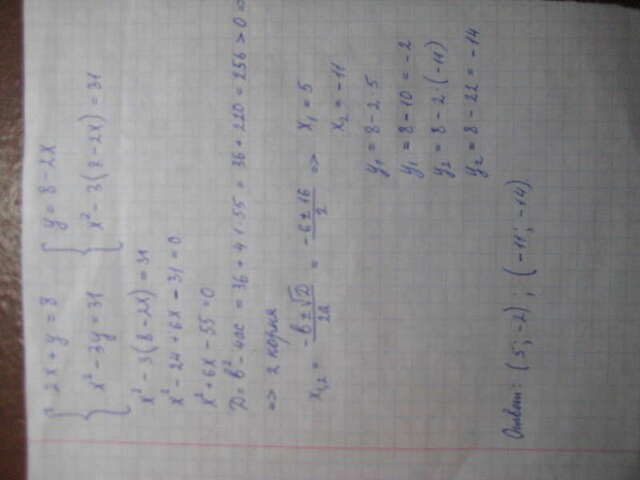 { 2x + y = 8 { y = 8 - 2x
{ x² - 3y = 31 { x² - 3(8 - 2x) = 31
x² - 3(8 - 2x) = 31
x² - 24 + 6x - 31 = 0
x² + 6x - 55 = 0
D = b² - 4ac = 36 + 4·1·55 = 36 + 220 = 256 > 0 =>
=> 2 корня
x₁,₂ = (-b ± √D)/2a = (-6 ± 16)/2 => x₁ = 5
x₂ = -11
y₁ = 8 - 2·5
y₁ = 8 - 10 = -2
y₂ = 8 - 2·(-11)
y₂ = 8 - 22 = -14
Ответ: (5; -2); (-11; -14)